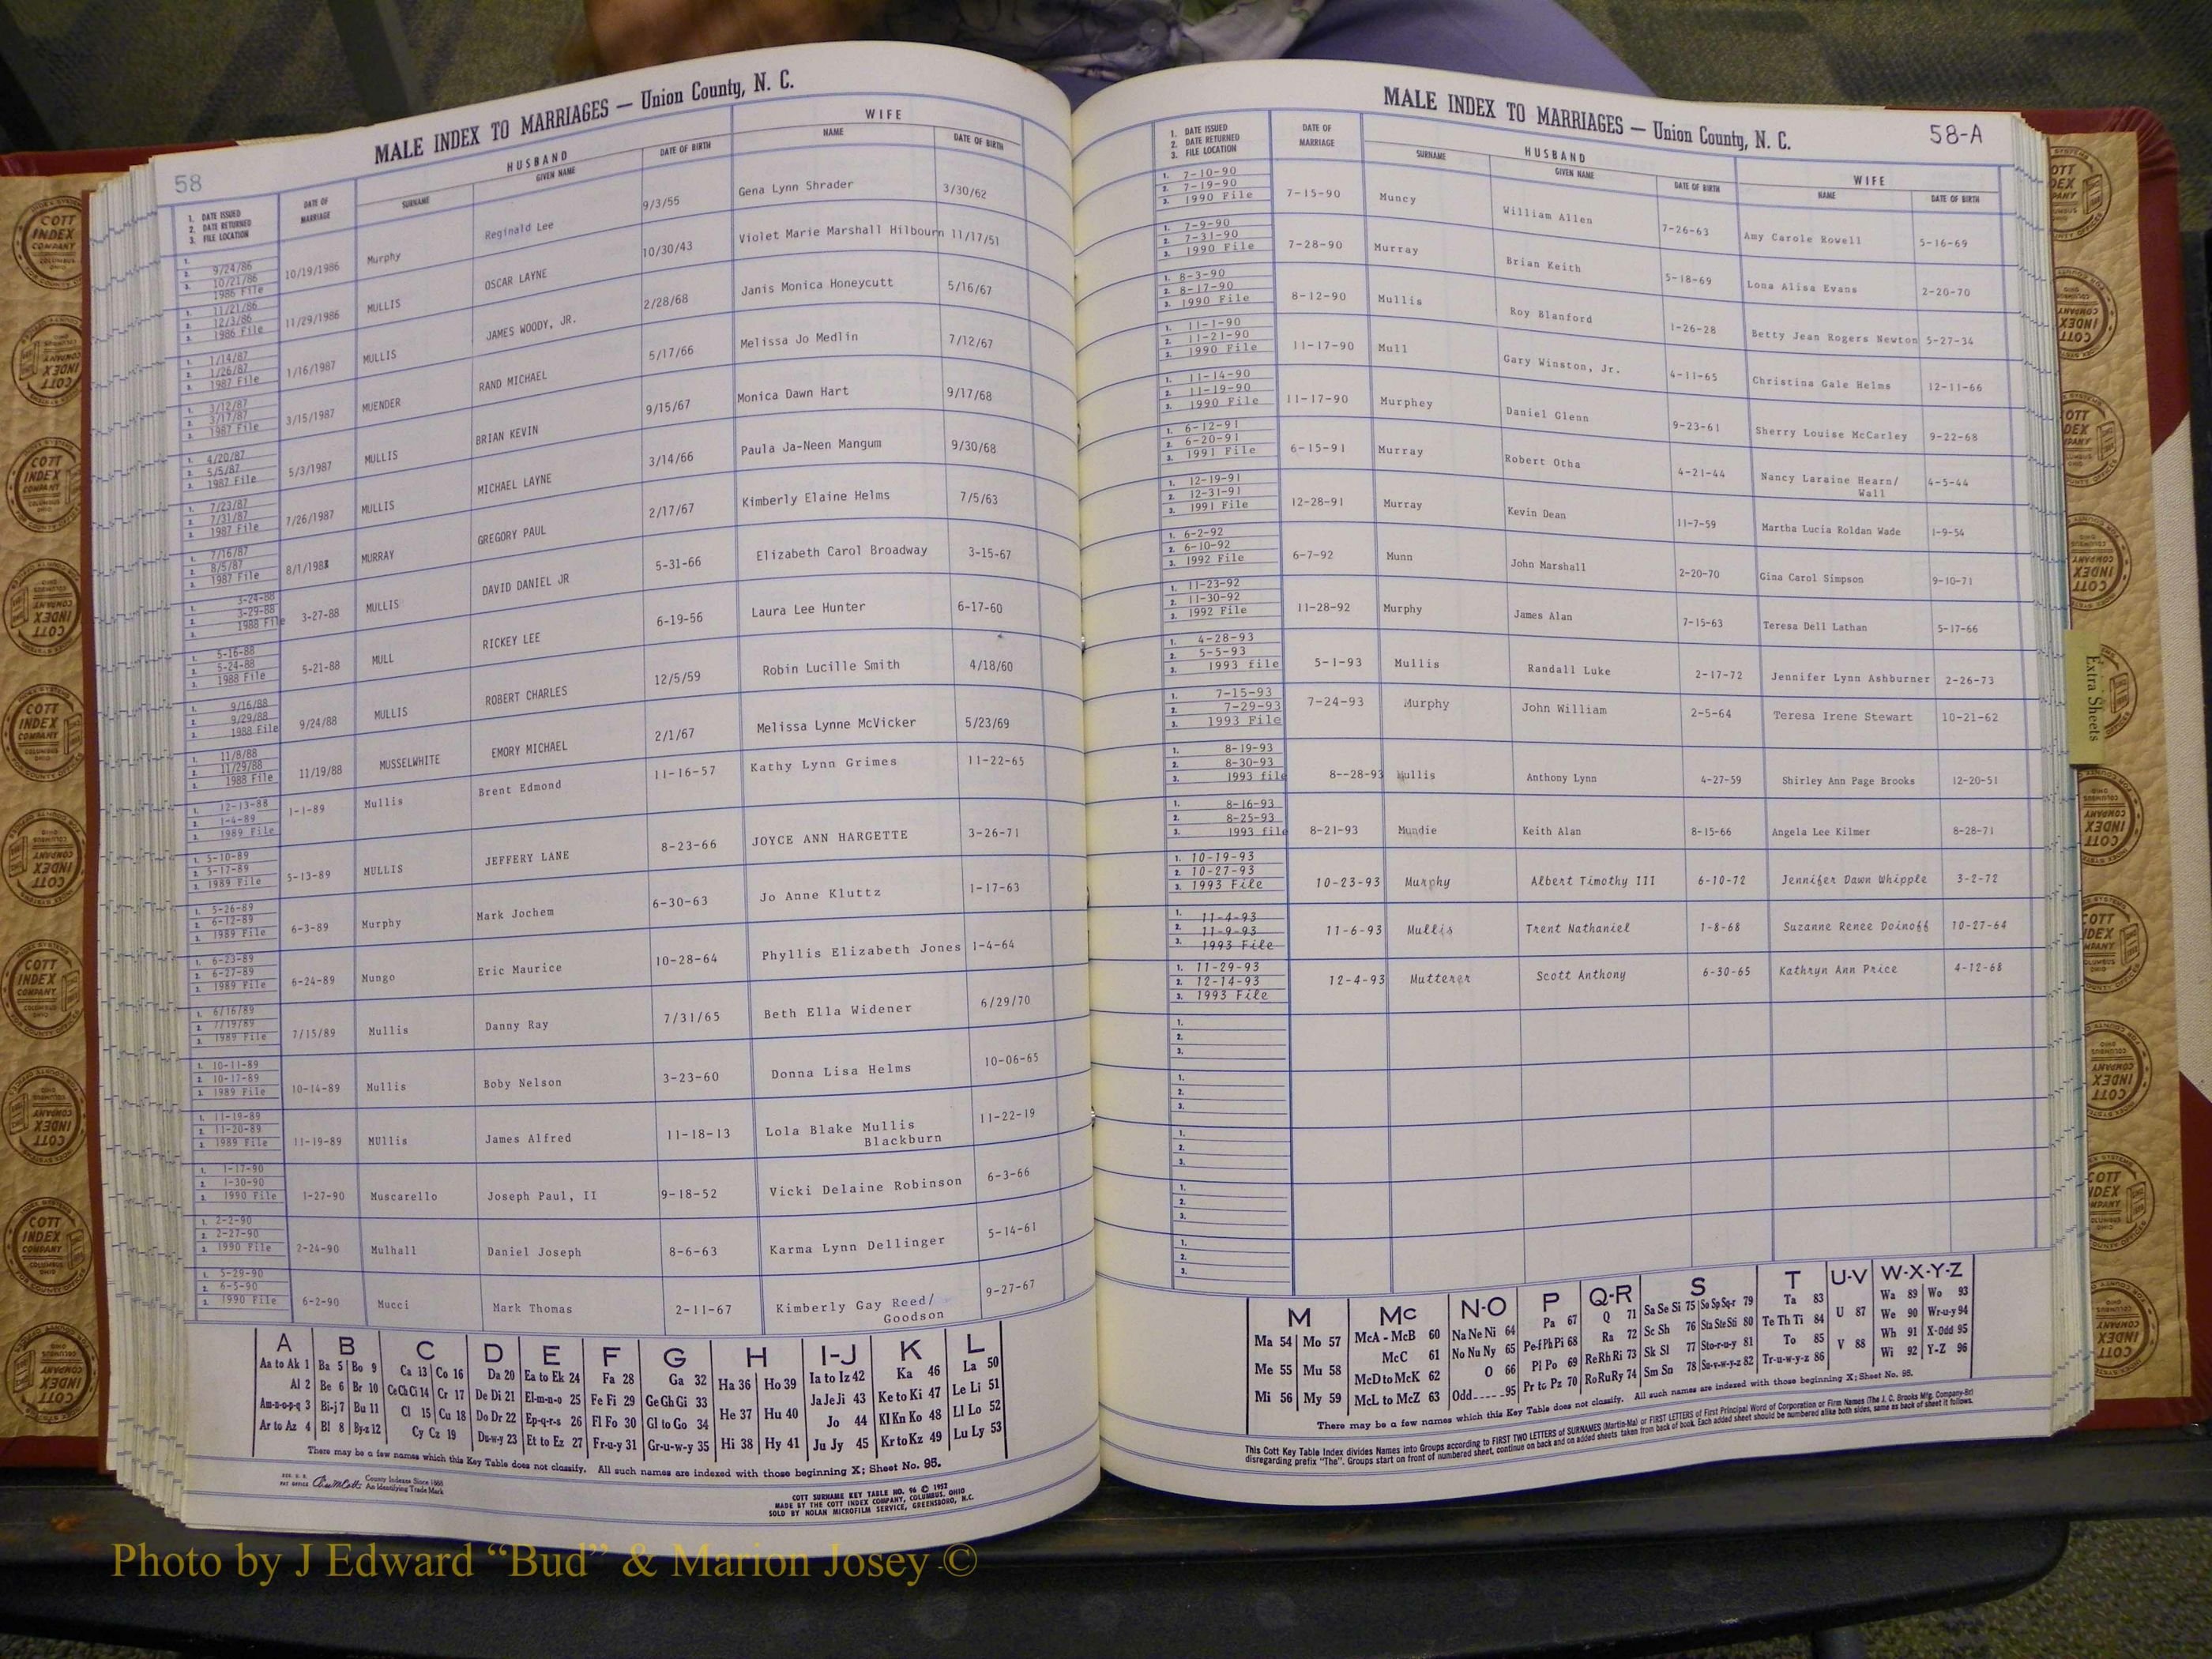 MALE INDEX TO MARRIAGES — Union County, N. C.
58
1. DATE ISSUED
2. DATE RETURNED
3. FILE LOCATION
DATE OF MARRIAGE
HUSBAND
SURNAME GIVEN NAME DATE OF BIRTH
WIFE
NAME DATE OF BIRTH
1. 9/24/86
2. 10/21/86
3. 1986 File
10/19/1986 Murphy Reginald Lee 9/3/55 Gena Lynn Shrader 3/30/62
1. 11/21/86
2. 12/3/86
3. 1986 File
11/29/1986 MULLIS OSCAR LAYNE 10/30/43 Violet Marie Marshall Hilbourn 11/17/51
1. 1/14/87
2. 1/26/87
3. 1987 File
1/16/1987 MULLIS JAMES WOODY, JR. 2/28/68 Janis Monica Honeycutt 5/16/67
1. 3/12/87
2. 3/17/87
3. 1987 File
3/15/1987 MUENDER RAND MICHAEL 5/17/66 Melissa Jo Medlin 7/12/67
1. 4/20/87
2. 5/5/87
3. 1987 File
5/3/1987 MULLIS BRIAN KEVIN 9/15/67 Monica Dawn Hart 9/17/68
1. 7/23/87
2. 7/31/87
3. 1987 File
7/26/1987 MULLIS MICHAEL LAYNE 3/14/66 Paula Ja-Neen Mangum 9/30/68
1. 7/16/87
2. 8/5/87
3. 1987 File
MURRAY GREGORY PAUL 2/17/67 Kimberly Elaine Helms 7/5/63
1. 3-24-88
2. 3-29-88
3. 1988 File
3-27-88 MULLIS DAVID DANIEL JR 5-31-66 Elizabeth Carol Broadway 3-15-67
1. 5-16-88
2. 5-24-88
3. 1988 File
5-21-88 MULL RICKEY LEE 6-19-56 Laura Lee Hunter 6-17-60
1. 9/16/88
2. 9/29/88
3. 1988 File
9/24/88 MULLIS ROBERT CHARLES 12/5/59 Robin Lucille Smith 4/18/60
1. 11/8/88
2. 11/29/88
3. 1988 File
11/19/88 MUSSELWHITE EMORY MICHAEL 2/1/67 Melissa Lynne McVicker 5/23/69
1. 12-13-88
2. 1-4-89
3. 1989 File
1-1-89 Mullis Brent Edmond 11-16-57 Kathy Lynn Grimes 11-22-65
1. 5-10-89
2. 5-17-89
3. 1989 File
5-13-89 MULLIS JEFFERY LANE 8-23-66 JOYCE ANN HARGETTE 3-26-71
1. 5-26-89
2. 6-12-89
3. 1989 File
6-3-89 Murphy Mark Jochem 6-30-63 Jo Anne Kluttz 1-17-63
1. 6-23-89
2. 6-27-89
3. 1989 File
6-24-89 Mungo Eric Maurice 10-28-64 Phyllis Elizabeth Jones 1-4-64
1. 6/16/89
2. 7/19/89
3. 1989 File
7/15/89 Mullis Danny Ray 7/31/65 Beth Ella Widener 6/29/70
1. 10-11-89
2. 10-17-89
3. 1989 File
10-14-89 Mullis Boby Nelson 3-23-60 Donna Lisa Helms 10-06-65
1. 11-19-89
2. 11-20-89
3. 1989 File
11-19-89 MUllis James Alfred 11-18-13 Lola Blake Mullis 11-22-19
Blackburn
1. 1-17-90
2. 1-30-90
3. 1990 File
1-27-90 Muscarello Joseph Paul, II 9-18-52 Vicki Delaine Robinson 6-3-66
1. 2-2-90
2. 2-27-90
3. 1990 File
2-24-90 Mulhall Daniel Joseph 8-6-63 Karma Lynn Dellinger 5-14-61
1. 5-29-90
2. 6-5-90
3. 1990 File
6-2-90 Mucci Mark Thomas 2-11-67 Kimberly Gay Reed/ 9-27-67
Goodson
A B C D E F G H I-J K L
Aa to Ak 1 Ba 5 Bo 9 Ca 13 Co 16 Da 20 Ea to Ek 24 Fa 28 Ga 32 Ha 36 Ho 39 Ia to Iz 42 Ka 46 La 50
Al 2 Be 6 Br 10 Ce Ch Ci 14 Cr 17 De Di 21 El-m-n-o 25 Fe Fi 29 Ge Gh Gi 33 He 37 Hu 40 Ja Je Ji 43 Ke to Ki 47 Le Li 51
Am-n-o-p-q 3 Bi-j 7 Bu 11 Cl 15 Cu 18 Do Dr 22 Ep-q-r-s 26 Fl Fo 30 Gl to Go 34 Hi 38 Hy 41 Jo 44 Kl Kn Ko 48 Ll Lo 52
Ar to Az 4 Bl 8 By-z 12 Cy Cz 19 Du-w-y 23 Et to Ez 27 Fr-u-y 31 Gr-u-w-y 35 Ju Jy 45 Kr to Kz 49 Lu Ly 53
There may be a few names which this Key Table does not classify. All such names are indexed with those beginning X; Sheet No. 95.
County Indexes Since 1888
An Identifying Trade Mark
COTT SURNAME KEY TABLE NO. 96 © 1952
MADE BY THE COTT INDEX COMPANY, COLUMBUS, OHIO
SOLD BY NOLAN MICROFILM SERVICE, GREENSBORO, N.C.
MALE INDEX TO MARRIAGES — Union County, N. C.
58-A
1. DATE ISSUED
2. DATE RETURNED
3. FILE LOCATION
DATE OF MARRIAGE
HUSBAND
SURNAME GIVEN NAME DATE OF BIRTH
WIFE
NAME DATE OF BIRTH
1. 7-10-90
2. 7-19-90
3. 1990 File
7-15-90 Muncy William Allen 7-26-63 Amy Carole Rowell 5-16-69
1. 7-9-90
2. 7-31-90
3. 1990 File
7-28-90 Murray Brian Keith 5-18-69 Lona Alisa Evans 2-20-70
1. 8-3-90
2. 8-17-90
3. 1990 File
8-12-90 Mullis Roy Blanford 1-26-28 Betty Jean Rogers Newton 5-27-34
1. 11-1-90
2. 11-21-90
3. 1990 File
11-17-90 Mull Gary Winston, Jr. 4-11-65 Christina Gale Helms 12-11-66
1. 11-14-90
2. 11-19-90
3. 1990 File
11-17-90 Murphey Daniel Glenn 9-23-61 Sherry Louise McCarley 9-22-68
1. 6-12-91
2. 6-20-91
3. 1991 File
6-15-91 Murray Robert Otha 4-21-44 Nancy Laraine Hearn/ 4-5-44
Wall
1. 12-19-91
2. 12-31-91
3. 1991 File
12-28-91 Murray Kevin Dean 11-7-59 Martha Lucia Roldan Wade 1-9-54
1. 6-2-92
2. 6-10-92
3. 1992 File
6-7-92 Munn John Marshall 2-20-70 Gina Carol Simpson 9-10-71
1. 11-23-92
2. 11-30-92
3. 1992 File
11-28-92 Murphy James Alan 7-15-63 Teresa Dell Lathan 5-17-66
1. 4-28-93
2. 5-5-93
3. 1993 file
5-1-93 Mullis Randall Luke 2-17-72 Jennifer Lynn Ashburner 2-26-73
1. 7-15-93
2. 7-29-93
3. 1993 File
7-24-93 Murphy John William 2-5-64 Teresa Irene Stewart 10-21-62
1. 8-19-93
2. 8-30-93
3. 1993 file
8--28-93 Mullis Anthony Lynn 4-27-59 Shirley Ann Page Brooks 12-20-51
1. 8-16-93
2. 8-25-93
3. 1993 file
8-21-93 Mundie Keith Alan 8-15-66 Angela Lee Kilmer 8-28-71
1. 10-19-93
2. 10-27-93
3. 1993 File
10-23-93 Murphy Albert Timothy III 6-10-72 Jennifer Dawn Whipple 3-2-72
1. 11-4-93
2. 11-9-93
3. 1993 File
11-6-93 Mullis Trent Nathaniel 1-8-68 Suzanne Renee Doinoff 10-27-64
1. 11-29-93
2. 12-14-93
3. 1993 File
12-4-93 Mutterer Scott Anthony 6-30-65 Kathryn Ann Price 4-12-68
1.
2.
3.
1.
2.
3.
1.
2.
3.
1.
2.
3.
1.
2.
3.
M Mc N-O P Q-R S T U-V W-X-Y-Z
Ma 54 Mo 57 McA - McB 60 Na Ne Ni 64 Pa 67 Q 71 Sa Se Si 75 So Sp Sq-r 79 Ta 83 U 87 Wa 89 Wo 93
Me 55 Mu 58 McC 61 No Nu Ny 65 Pe-f Ph Pi 68 Ra 72 Sc Sh 76 Sta Ste Sti 80 Te Th Ti 84 V 88 We 90 Wr-u-y 94
Mi 56 My 59 McD to McK 62 O 66 Pl Po 69 Re Rh Ri 73 Sk Sl 77 Sto-r-u-y 81 To 85 Wh 91 X-Odd 95
McL to McZ 63 Odd 95 Pr to Pz 70 Ro Ru Ry 74 Sm Sn 78 Su-v-w-y-z 82 Tr-u-w-y-z 86 Wi 92 Y-Z 96
There may be a few names which this Key Table does not classify. All such names are indexed with those beginning X; Sheet No. 95.
This Cott Key Table Index divides Names into Groups according to FIRST TWO LETTERS of SURNAMES (Martin-Ma) or FIRST LETTERS of First Principal Word of Corporation or Firm Names (The J. C. Brooks Mfg. Company-Br)
disregarding prefix "The". Groups start on front of numbered sheet, continue on back and on added sheets taken from back of book. Each added sheet should be numbered alike both sides, same as back of sheet it follows.
Extra Sheets
COTT
INDEX
COMPANY
COLUMBUS
OHIO
Photo by J Edward “Bud” & Marion Josey ©